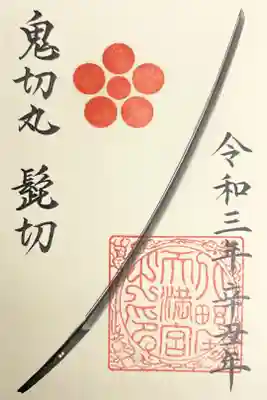 令和三年辛丑年
天満宮
鬼切丸 髭切